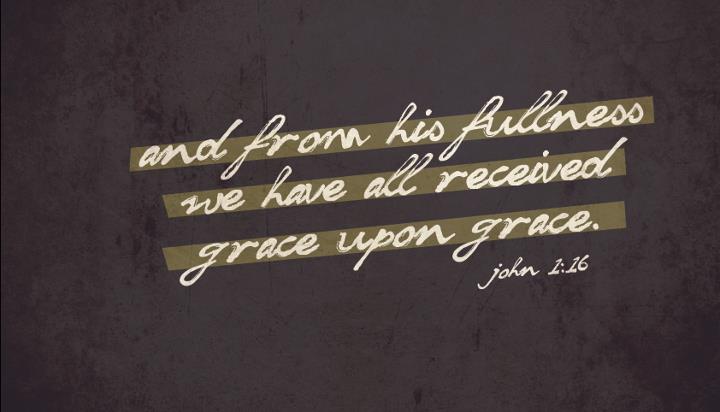 and from his fullness
we have all received
grace upon grace.
john 1:16